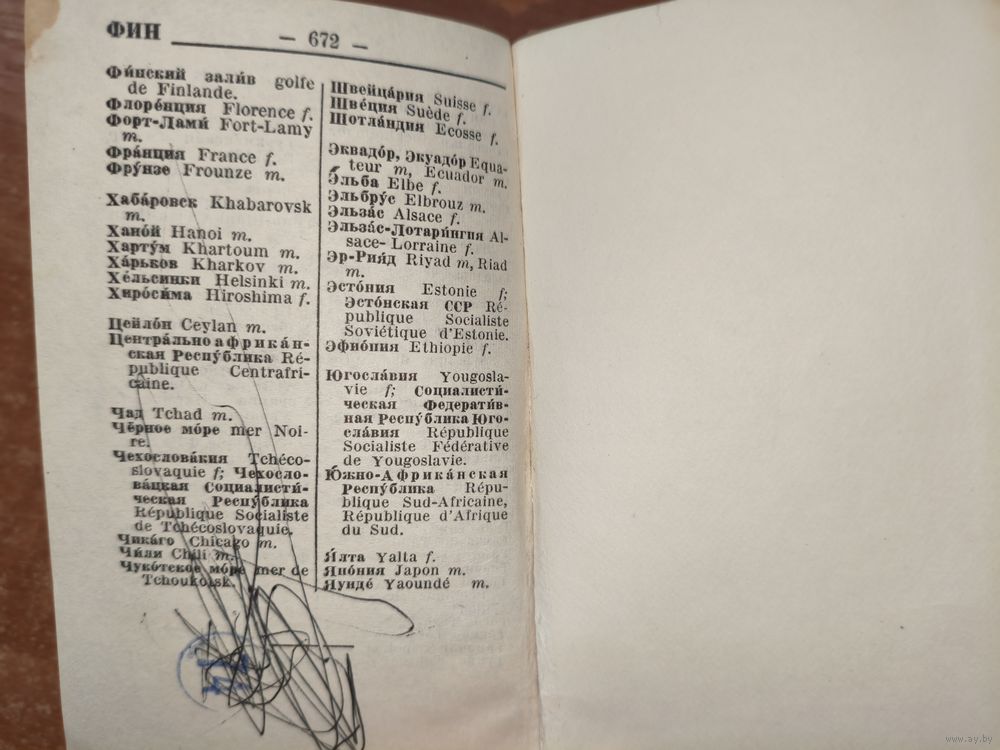 ФИН
— 672 —
Фи́нский зали́в golfe
de Finlande.
Флоре́нция Florence f.
Форт-Лами́ Fort-Lamy
m.
Фра́нция France f.
Фру́нзе Frounze m.
Хаба́ровск Khabarovsk
m.
Хано́й Hanoi m.
Харту́м Khartoum m.
Ха́рьков Kharkov m.
Хе́льсинки Helsinki m.
Хиро́сима Hiroshima f.
Цейло́н Ceylan m.
Центра́льноафрика́н-
ская Респу́блика Ré-
publique Centrafri-
caine.
Чад Tchad m.
Чёрное мо́ре mer Noi-
re.
Чехослова́кия Tchéco-
slovaquie f; Чехосло-
ва́цкая Социалисти́-
ческая Респу́блика
République Socialiste
de Tchécoslovaquie.
Чика́го Chicago m.
Чи́ли Chili m.
Чуко́тское мо́ре mer de
Tchoukotsk.
Швейца́рия Suisse f.
Шве́ция Suède f.
Шотла́ндия Ecosse f.
Эквадо́р, Экуадо́р Equa-
teur m, Ecuador m.
Э́льба Elbe f.
Эльбру́с Elbrouz m.
Эльза́с Alsace f.
Эльза́с-Лотари́нгия Al-
sace- Lorraine f.
Эр-Рия́д Riyad m, Riad
m.
Эсто́ния Estonie f;
Эсто́нская ССР Ré-
publique Socialiste
Soviétique d'Estonie.
Эфио́пия Ethiopie f.
Югосла́вия Yougosla-
vie f; Социалисти́-
ческая Федерати́в-
ная Респу́блика Юго-
сла́вия République
Socialiste Fédérative
de Yougoslavie.
Ю́жно-Африка́нская
Респу́блика Répu-
blique Sud-Africaine,
République d'Afrique
du Sud.
Я́лта Yalta f.
Япо́ния Japon m.
Яунде́ Yaoundé m.
www.ay.by